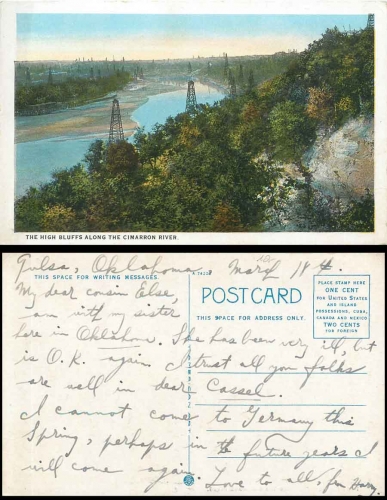 THE HIGH BLUFFS ALONG THE CIMARRON RIVER.
Tulsa, Oklahoma, March 18th.
THIS SPACE FOR WRITING MESSAGES.
POSTCARD
THIS SPACE FOR ADDRESS ONLY.
PLACE STAMP HERE
ONE CENT
FOR UNITED STATES
AND ISLAND
POSSESSIONS, CUBA,
CANADA AND MEXICO
TWO CENTS
FOR FOREIGN
My dear cousin Else,
I am with my sister
here in Oklahoma. She has been very ill, but
is O.K. again. I trust all you folks
are well in dear Cassel.
I cannot come to Germany this
Spring, perhaps in the future years I
will come again. Love to all, fr. Harry